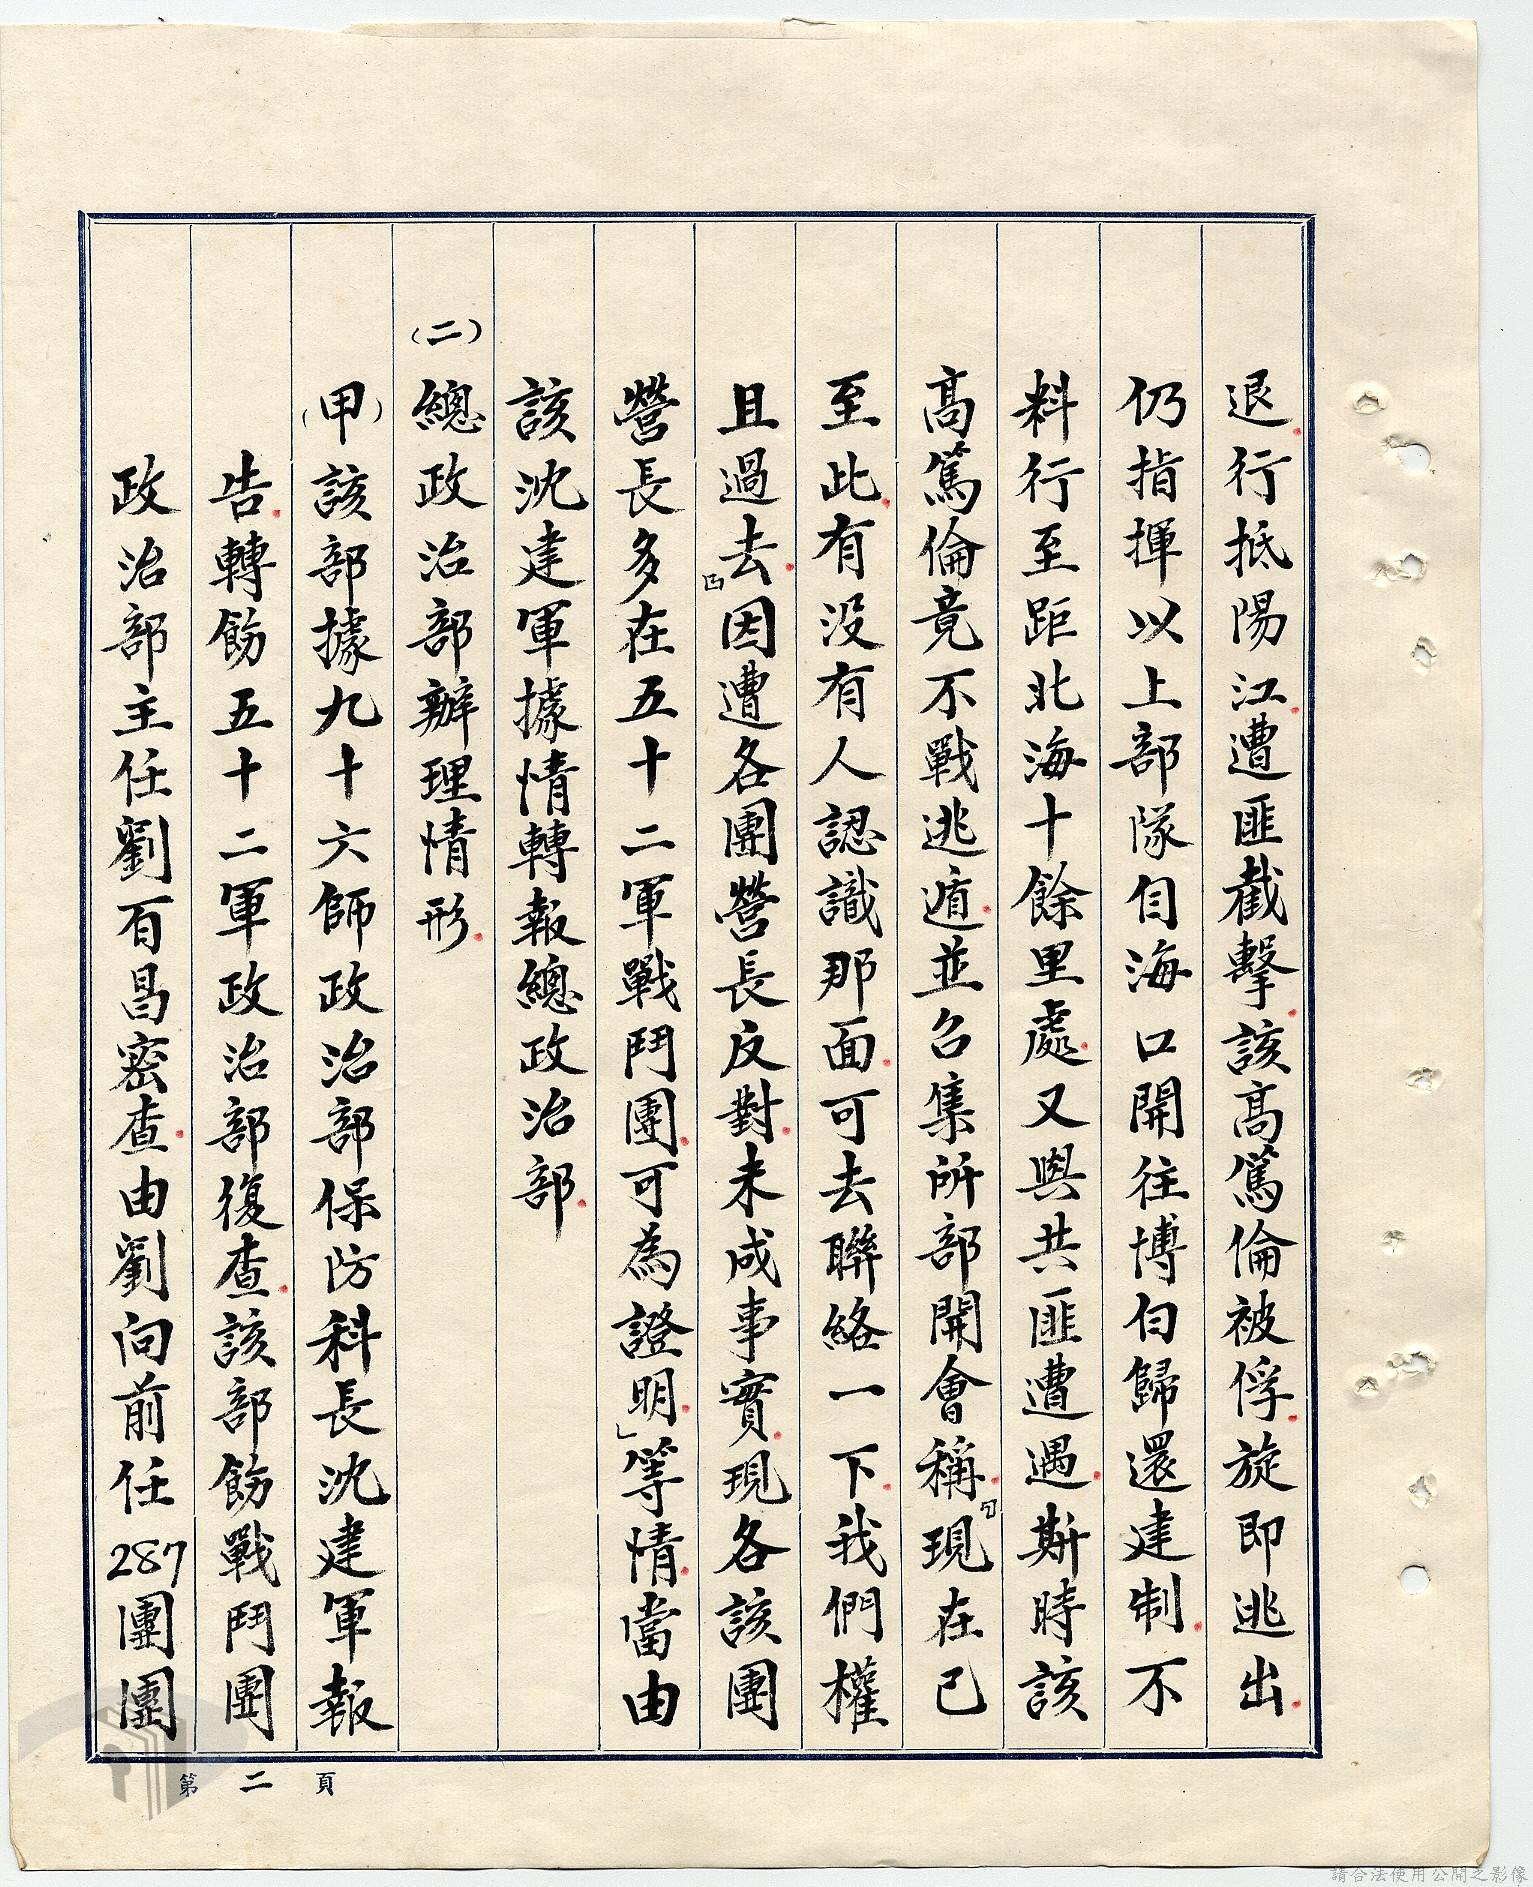 退行抵陽江遭匪截擊該高篤倫被俘旋即逃出
仍指揮以上部隊自海口開往博白歸還建制不
料行至距北海十餘里處又與共匪遭遇斯時該
高篤倫竟不戰逃遁並召集所部開會稱「現在已
至此有没有人認識那面可去聯絡一下我們權
且過去」因遭各團營長反對未成事實現各該團
營長多在五十二軍戰鬥團可為證明」等情當由
該沈建軍據情轉報總政治部
(二)總政治部辦理情形
(甲)該部據九十六師政治部保防科長沈建軍報
告轉飭五十二軍政治部復查該部飭戰鬥團
政治部主任劉百昌密查由劉向前任287團團
第二頁
請合法使用公開之影像